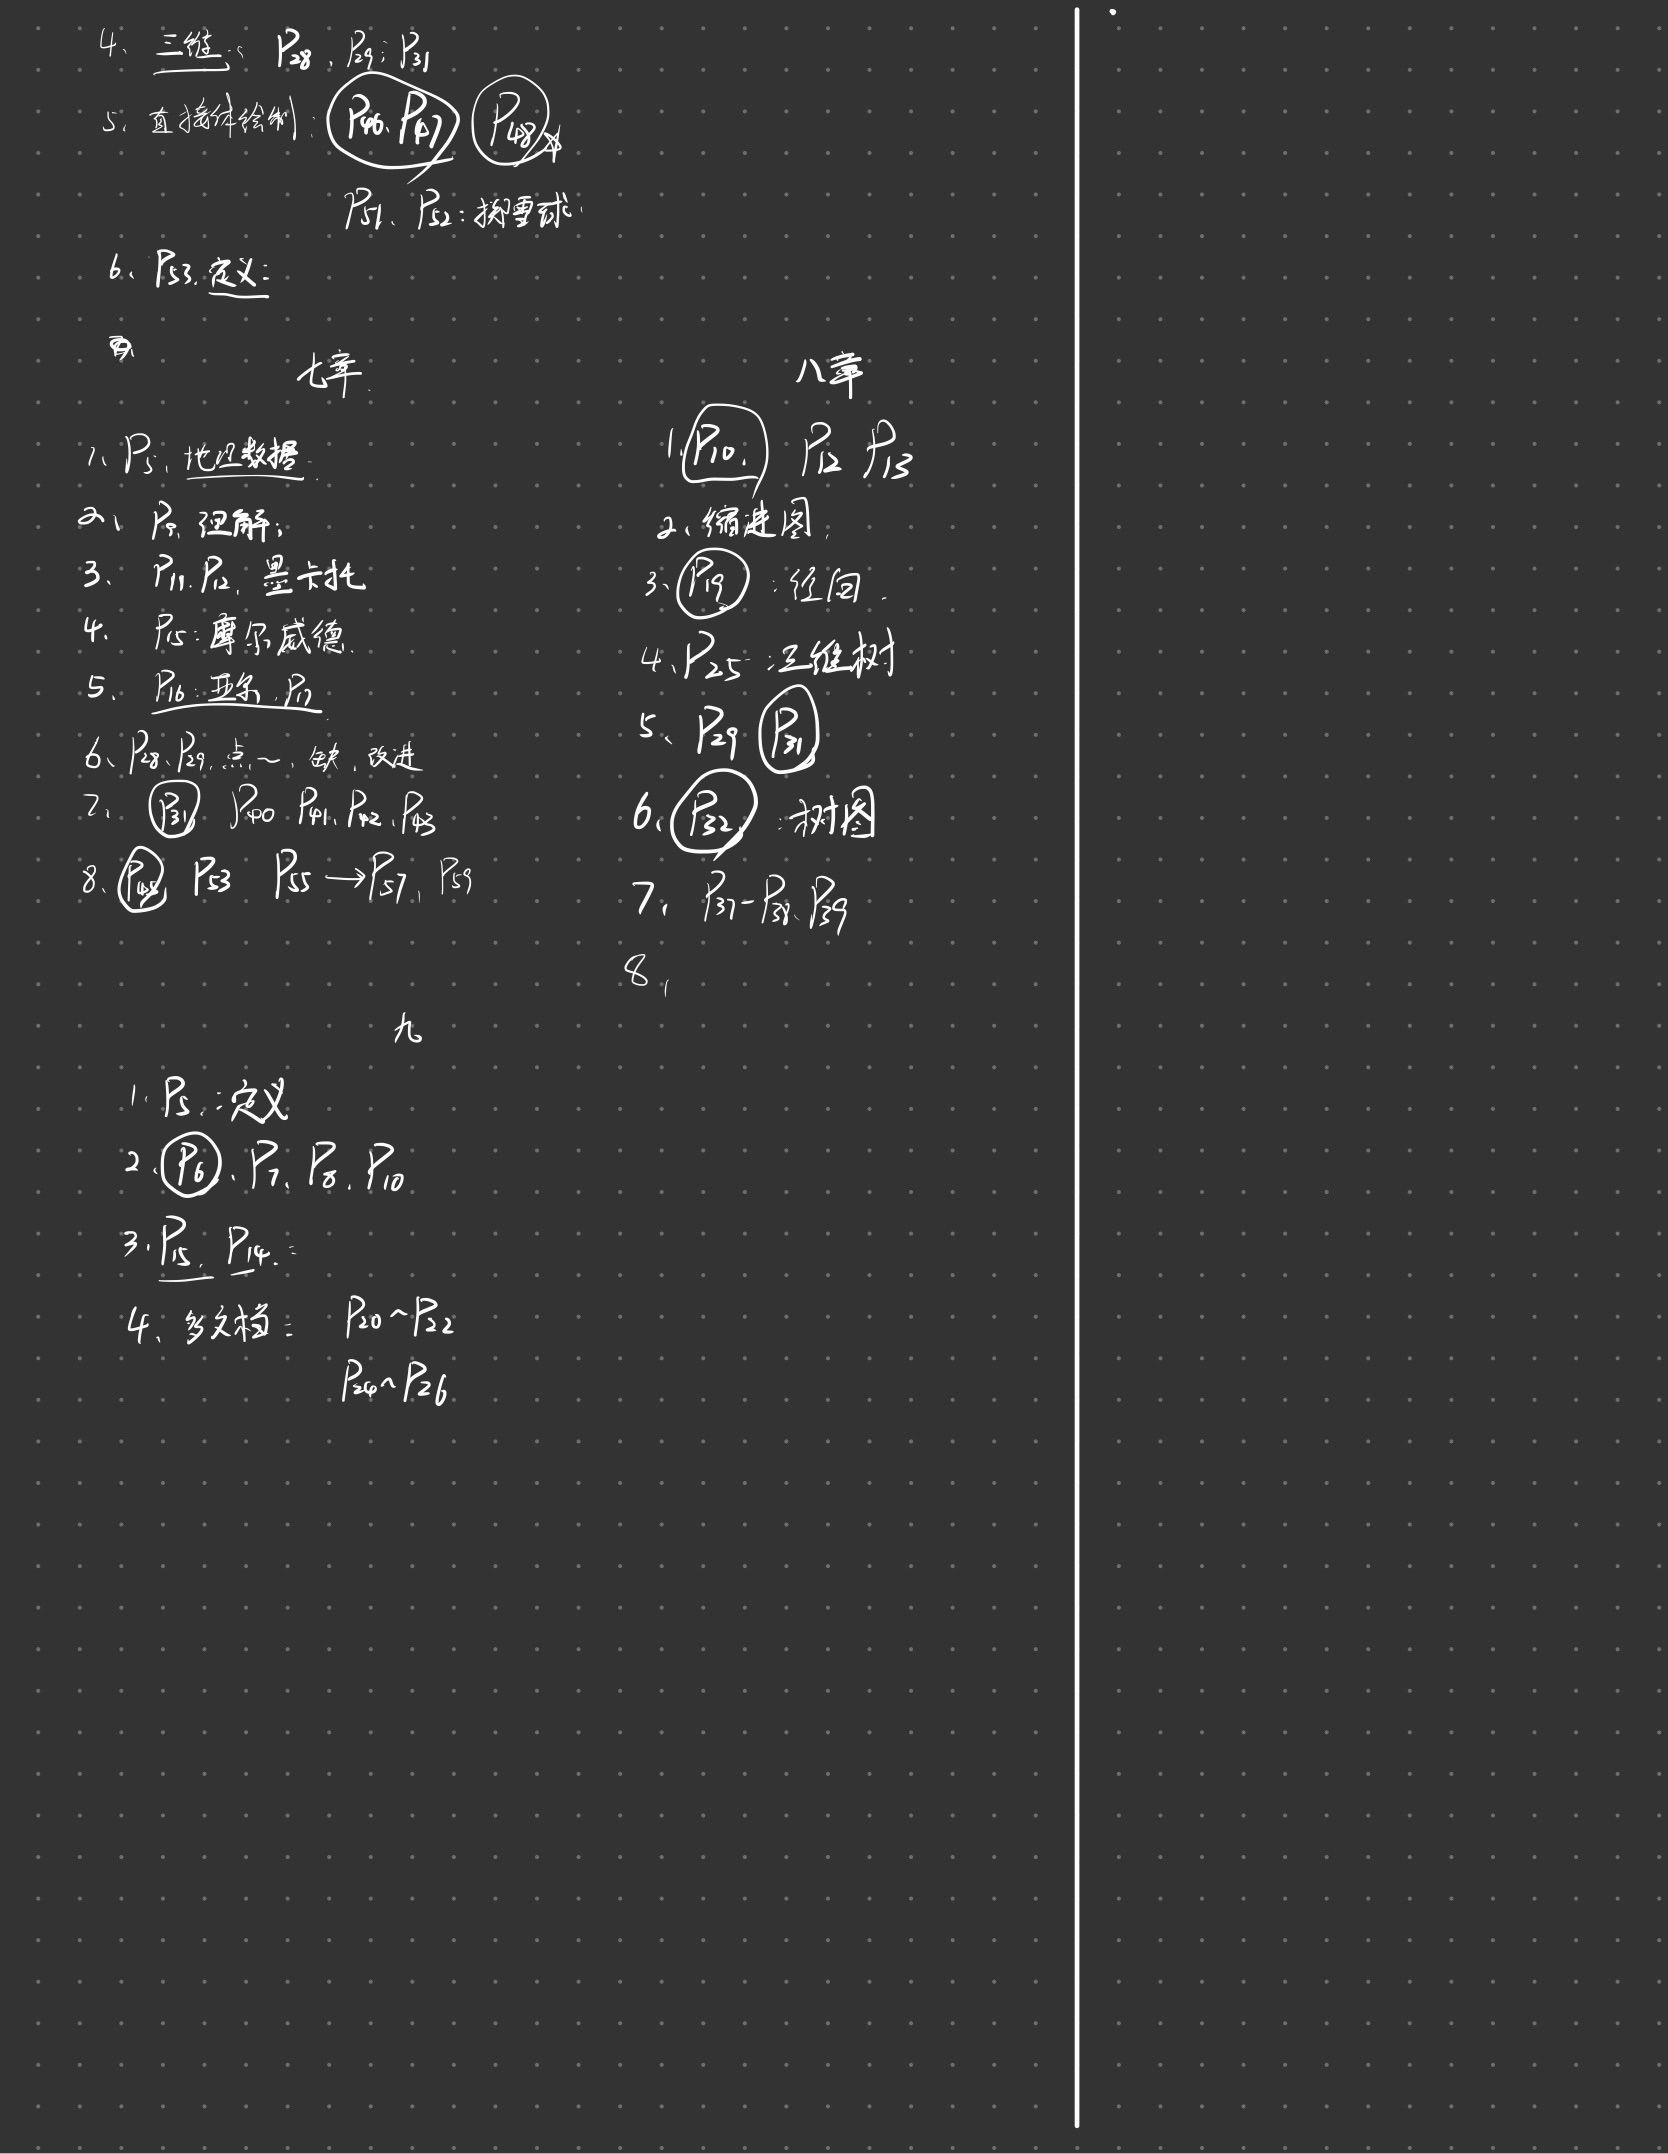 4、三维: P28、P29; P31
5、直接体绘制: P46、P47 P48
P51、P52: 掷雪球
6、P53.定义:
七章
1、P5、地理数据
2、P9、理解;
3、P11.P12、墨卡托
4、P15:摩尔威德
5、P16:亚尔、P17
6、P28、P29、点~、缺、改进
7、P31 P40 P41、P42、P43
8、P45 P53 P55→P57、P59
八章
1、P10、 P12 P13
2、缩进图
3、P19:径向
4、P25:三维树
5、P29 P31
6、P32:树图
7、P37-P38、P39
8、
九
1、P5:定义
2、P6、P7、P8、P10
3、P15、P14:
4、多文档: P20~P22
P24~P26